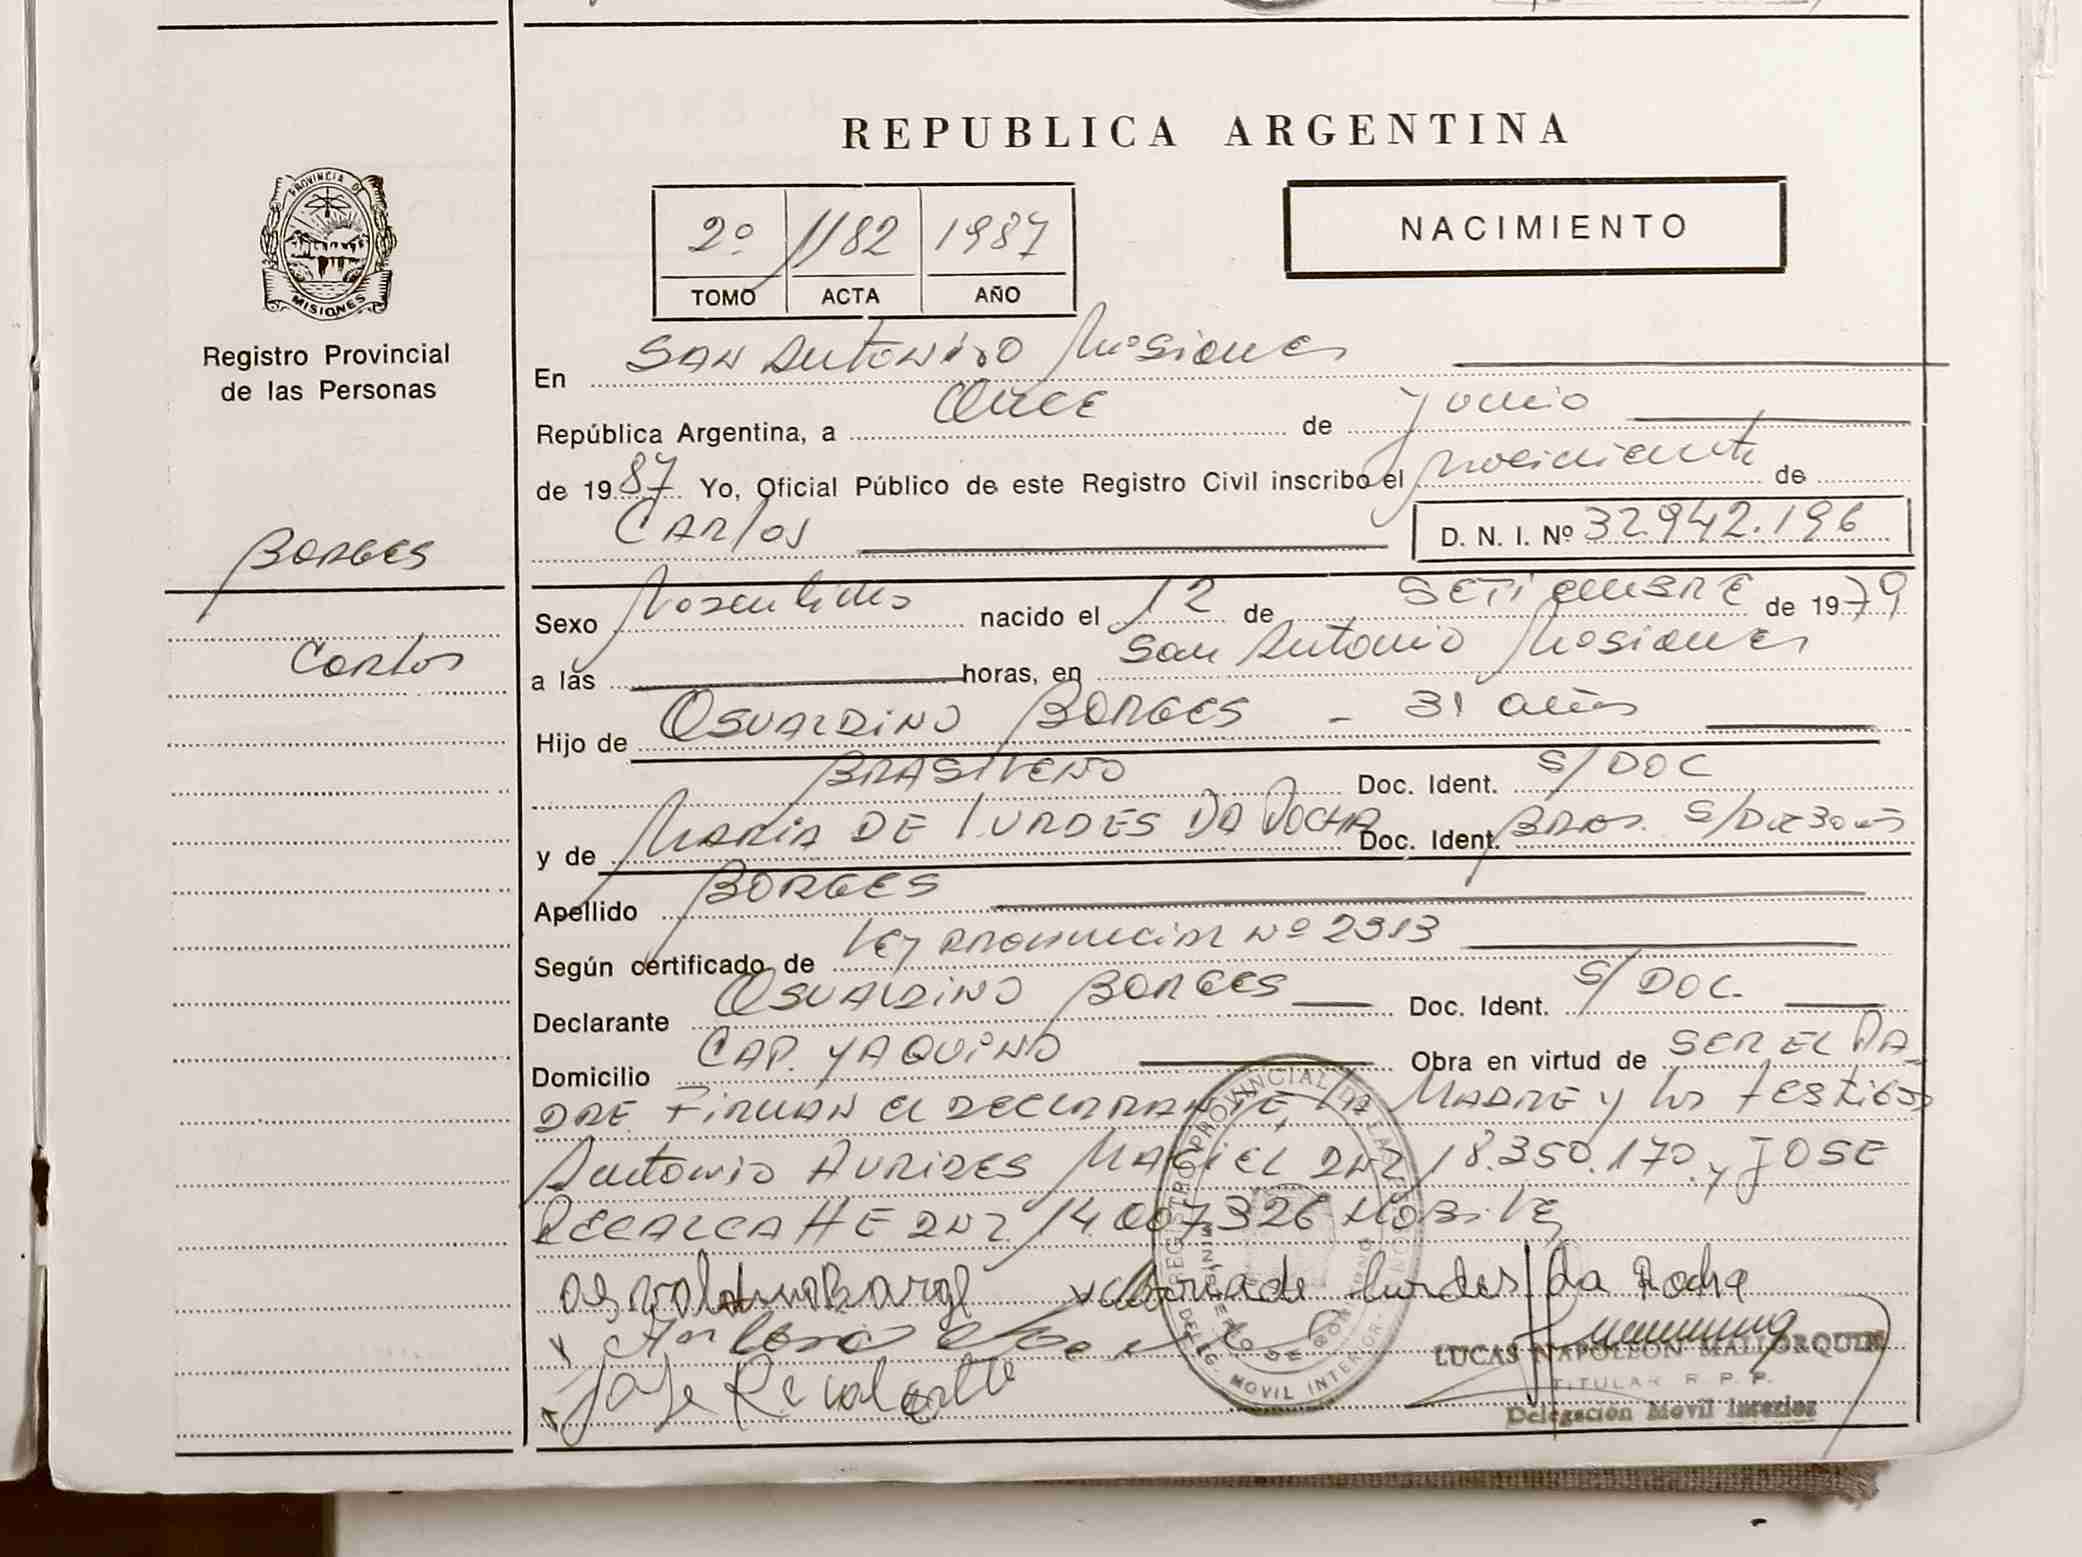 REPUBLICA ARGENTINA
PROVINCIA DE MISIONES
2º 1182 1987
TOMO ACTA AÑO
NACIMIENTO
Registro Provincial
de las Personas
En San Antonio Misiones
República Argentina, a Once de Junio
de 1987 Yo, Oficial Público de este Registro Civil inscribo el nacimiento de
Carlos D. N. I. Nº 32.942.196
BORGES
Carlos
Sexo Masculino nacido el 12 de SETIEMBRE de 1979
a las horas, en San Antonio Misiones
Hijo de OSVALDINO BORGES - 31 años
BRASILENO Doc. Ident. S/DOC
y de MARIA DE LURDES DA ROCHA Doc. Ident. BRAS. S/DOC 30 años
Apellido BORGES
Según certificado de Ley provincial Nº 2313
Declarante OSVALDINO BORGES Doc. Ident. S/DOC.
Domicilio CAP. YAQUINO Obra en virtud de SER EL PA
DRE Firman el DECLARANTE, la MADRE y los testigos
Antonio AURIDES MACIEL DNI 18.350.170 y JOSE
RECALCATTE DNI 14.007.326
x Maria de Lurdes Da Rocha
x
x Jose Recalcatte
REGISTRO PROVINCIAL DE LAS PERSONAS
MINISTERIO DE GOBIERNO
DELEG. MOVIL INTERIOR
LUCAS NAPOLEON MALLORQUIN
TITULAR R. P. P.
Delegación Movil Interior